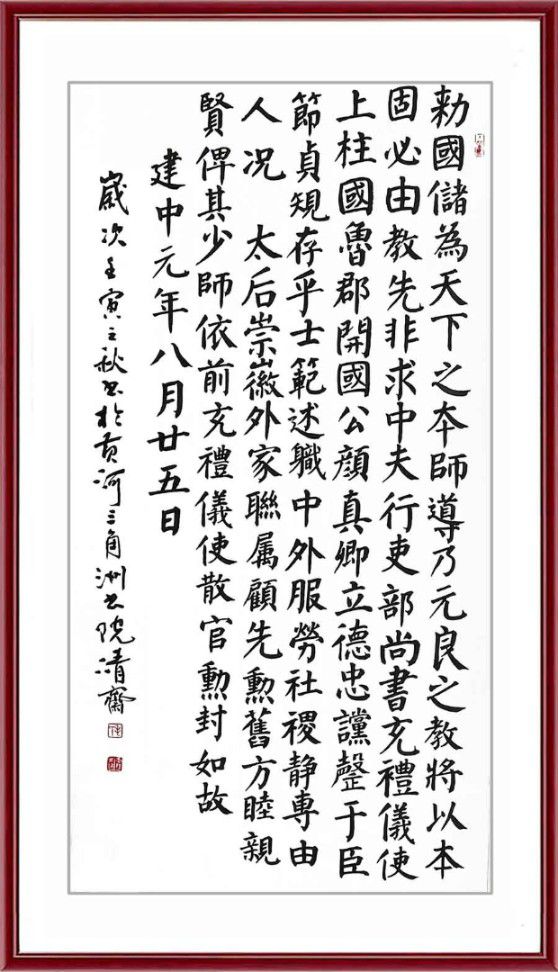 勅國儲為天下之本師導乃元良之教將以本
固必由教先非求中夫行吏部尚書充禮儀使
上柱國魯郡開國公顔真卿立德忠讜罄于臣
節貞規存乎士範述職中外服勞社稷静專由
人況 太后崇徽外家聯属顧先勳舊方睦親
賢俾其少師依前充禮儀使散官勳封如故
建中元年八月廿五日
歲次壬寅之秋书於黄河三角洲书院清齋